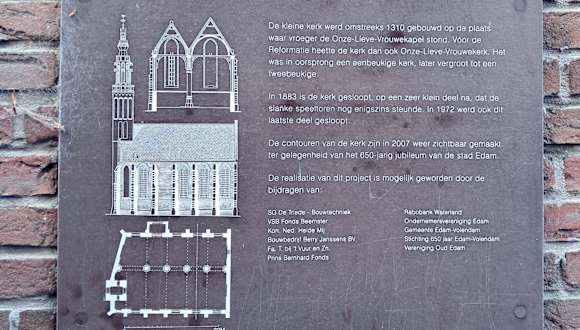 De kleine kerk werd omstreeks 1310 gebouwd op de plaats
waar vroeger de Onze-Lieve-Vrouwekapel stond. Vóór de
Reformatie heette de kerk dan ook Onze-Lieve-Vrouwekerk. Het
was in oorsprong een eenbeukige kerk, later vergroot tot een
tweebeukige.
In 1883 is de kerk gesloopt, op een zeer klein deel na, dat de
slanke speeltoren nog enigszins steunde. In 1972 werd ook dit
laatste deel gesloopt.
De contouren van de kerk zijn in 2007 weer zichtbaar gemaakt
ter gelegenheid van het 650-jarig jubileum van de stad Edam.
De realisatie van dit project is mogelijk geworden door de
bijdragen van:
SG De Triade - Bouwtechniek
VSB Fonds Beemster
Kon. Ned. Heide Mij
Bouwbedrijf Berry Janssens BV
Fa. T. bij 't Vuur en Zn.
Prins Bernhard Fonds
Rabobank Waterland
Ondernemersvereniging Edam
Gemeente Edam-Volendam
Stichting 650 jaar Edam-Volendam
Vereniging Oud Edam
20M